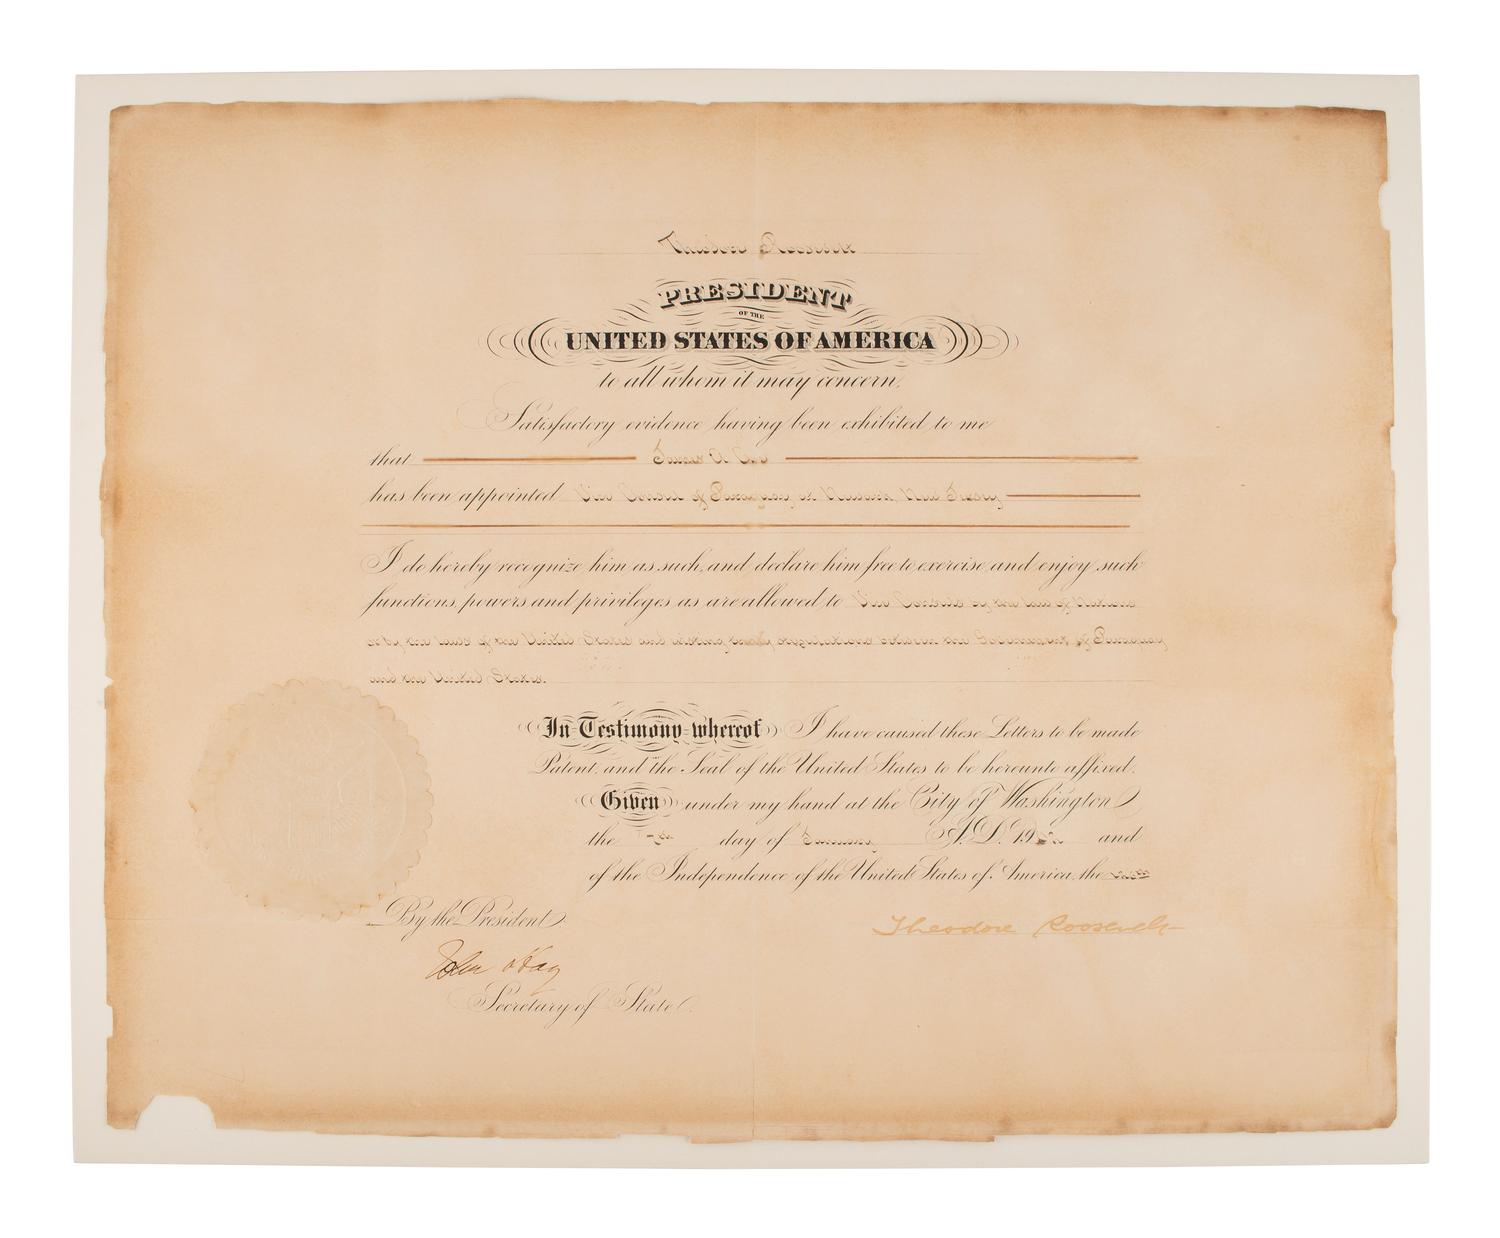 Theodore Roosevelt
PRESIDENT
OF THE
UNITED STATES OF AMERICA
to all whom it may concern.
Satisfactory evidence having been exhibited to me
that James A. Coe
has been appointed Vice Consul of Paraguay at Newark, New Jersey
I do hereby recognize him as such, and declare him free to exercise and enjoy such
functions, powers and privileges as are allowed to Vice Consuls by the law of Nations
or by the laws of the United States and existing treaty stipulations between the Government of Paraguay
and the United States.
In Testimony whereof I have caused these Letters to be made
Patent, and the Seal of the United States to be hereunto affixed.
Given under my hand at the City of Washington
the day of January A.D. 19 and
of the Independence of the United States of America, the
By the President
Theodore Roosevelt
John Hay
Secretary of State.